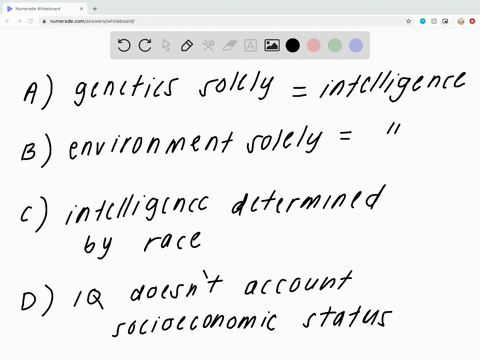 Numerade Whiteboard
numerade.com/answers/whiteboard/
A) genetics solely = intelligence
B) environment solely = "
C) intelligence determined
by race
D) IQ doesn't account
socioeconomic status